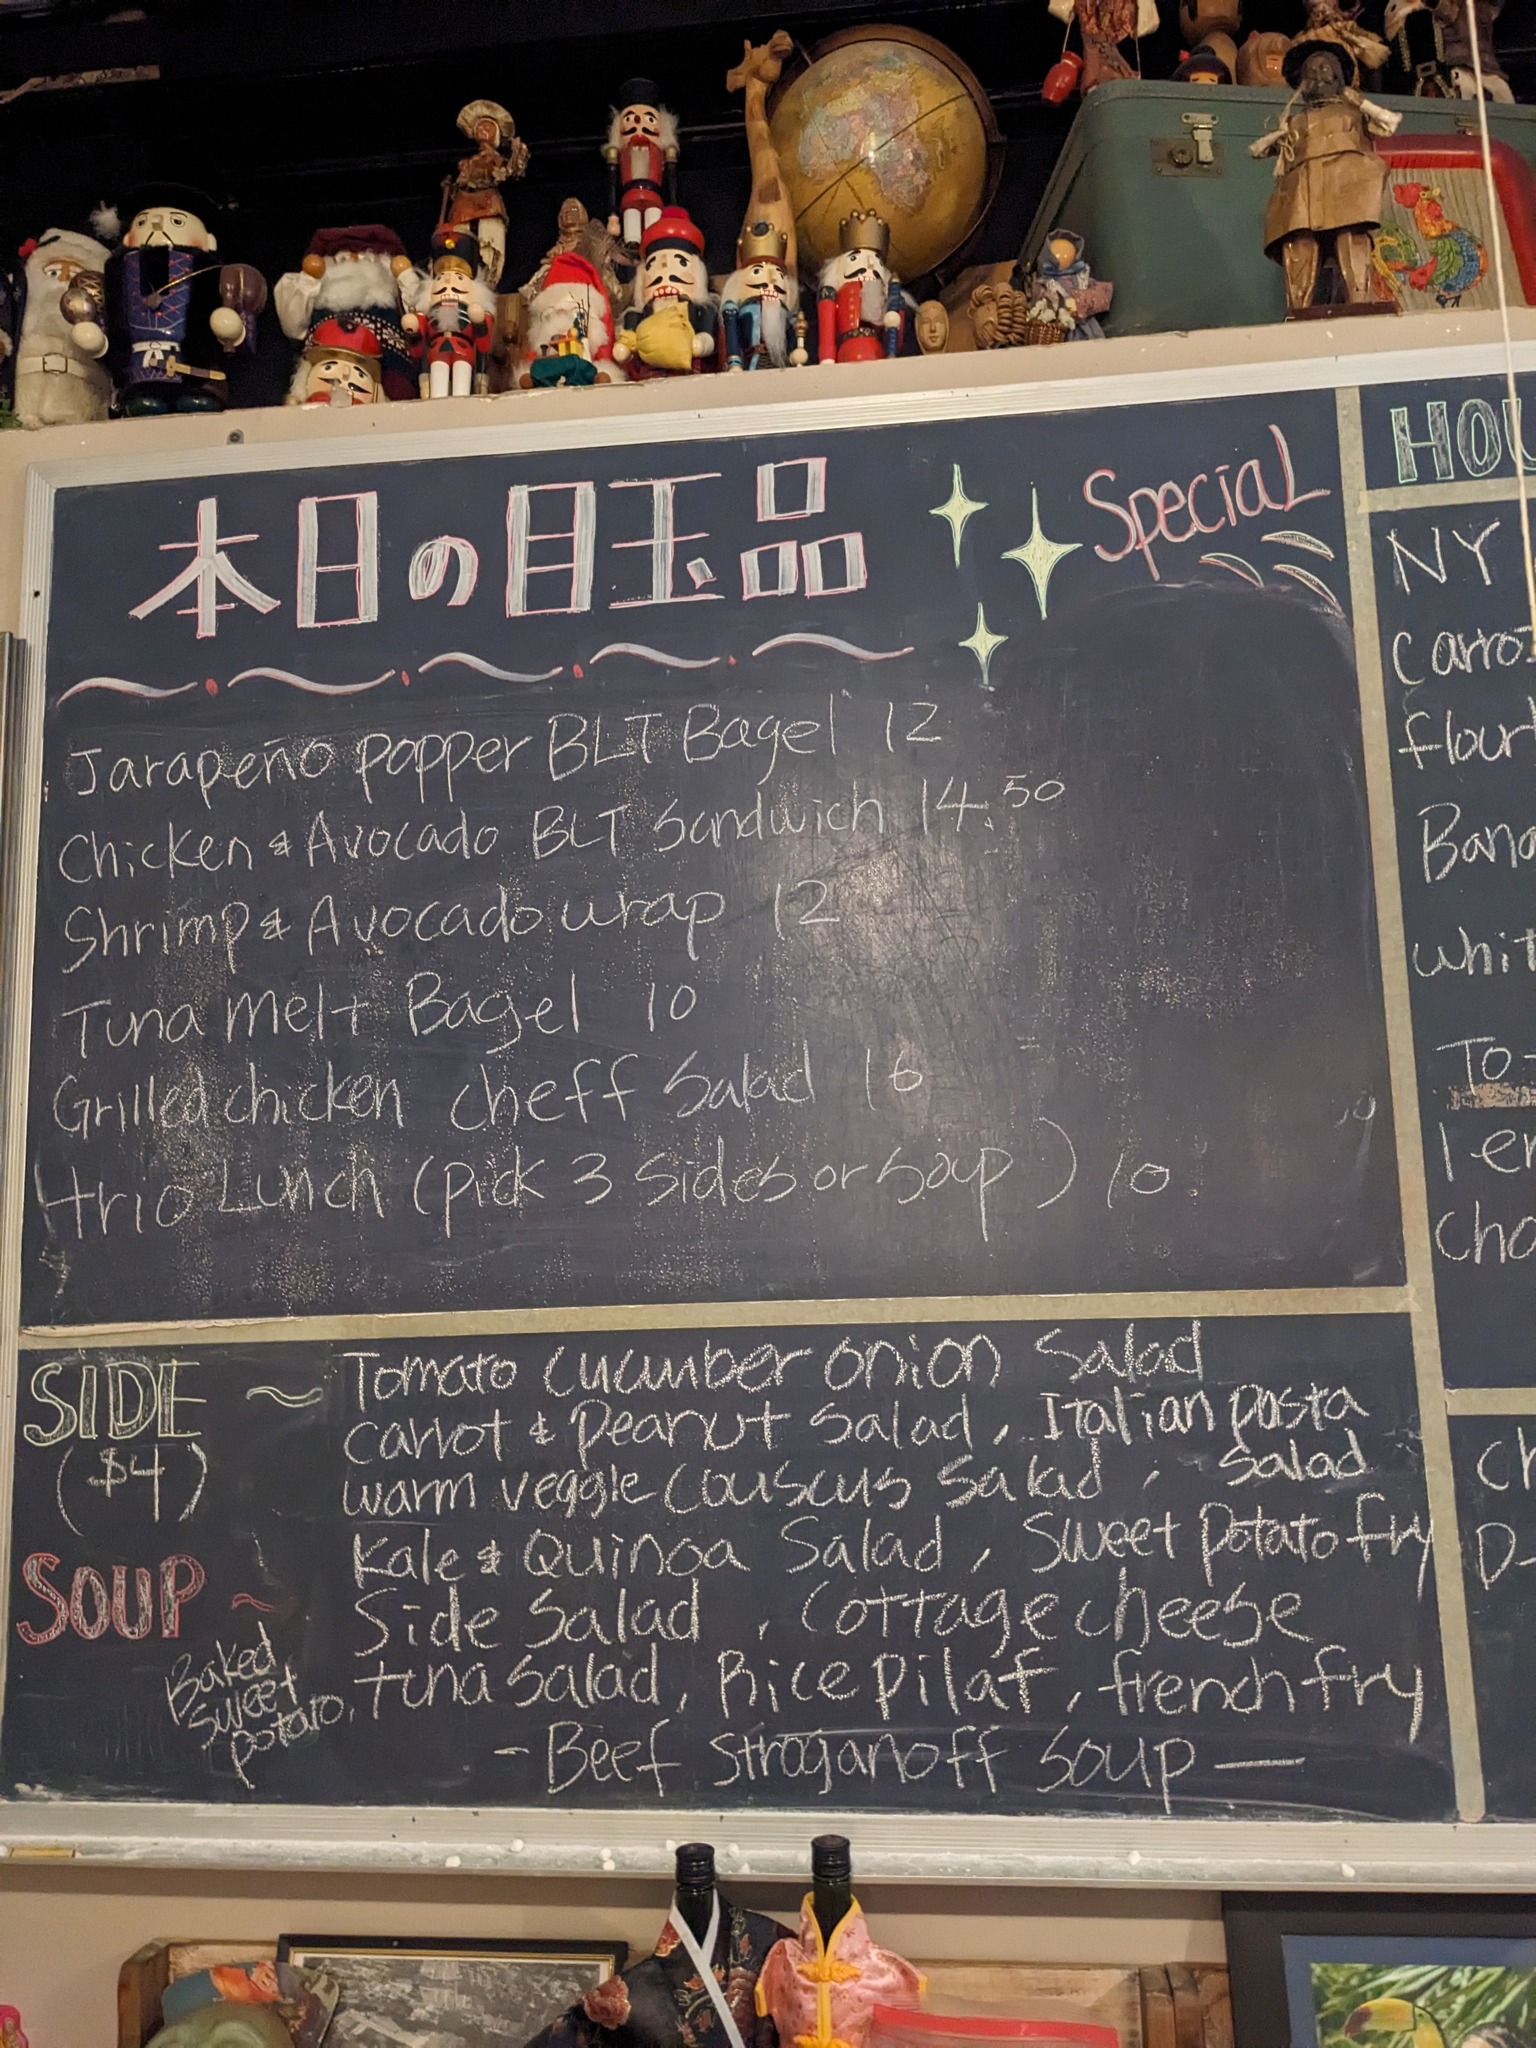 本日の目玉品 Special
Jarapeño popper BLT Bagel 12
Chicken & Avocado BLT Sandwich 14.50
Shrimp & Avocado wrap 12
Tuna melt Bagel 10
Grilled chicken cheff Salad 16
trio Lunch (pick 3 sides or soup) 10
SIDE ~
($4)
Tomato cucumber onion Salad
carrot & peanut salad, Italian pasta
warm veggie couscus salad, salad
Kale & Quinoa Salad, Sweet potato fry
Side Salad, Cottage cheese
SOUP ~
Baked
Sweet
potato, tuna salad, Rice pilaf, french fry
- Beef stroganoff soup -
NY
To-